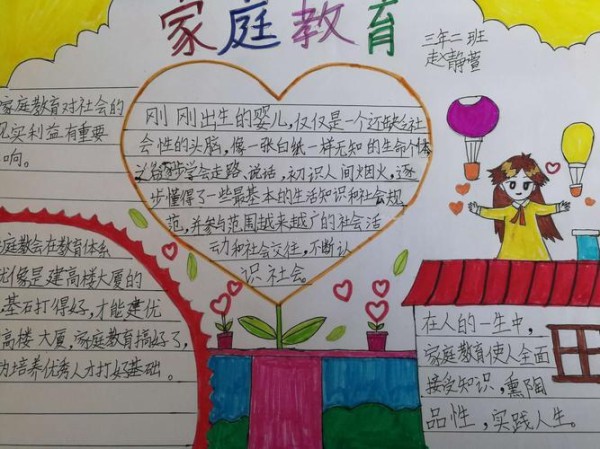 家庭教育
三年二班
赵静萱
家庭教育对社会的
现实利益有重要
响。
刚刚出生的婴儿,仅仅是一个还缺乏社
会性的头脑,像一张白纸一样无知的生命个体
学会走路、说话,初识人间烟火,逐
步懂得了一些最基本的生活知识和社会规
范,并参与范围越来越广的社会活
动和社会交往,不断认
识社会。
庭教会在教育体系
就像是建高楼大厦的
基石打得好,才能建优
高楼大厦,家庭教育搞好了,
为培养优秀人才打好基础。
在人的一生中,
家庭教育使人全面
接受知识,熏陶
品性,实践人生。